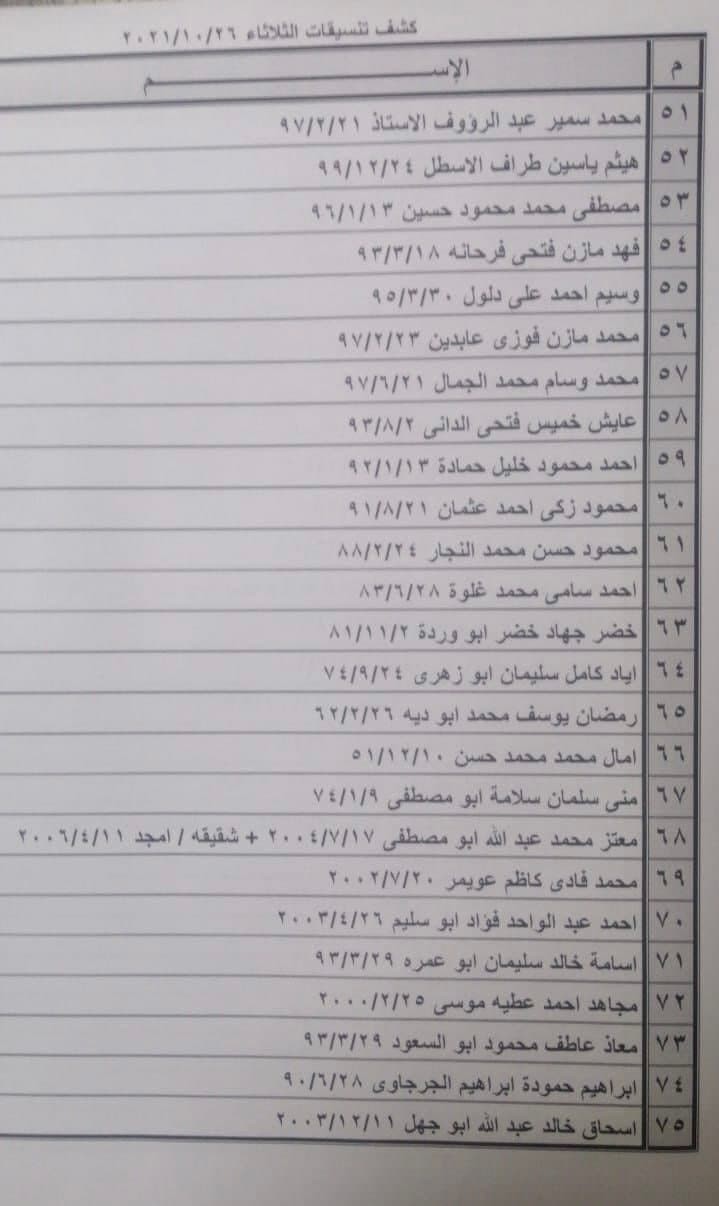 كشف تنسيقات الثلاثاء ٢٠٢١/١٠/٢٦
م الإســـــــــــــــــــــــم
٥١ محمد سمير عبد الرؤوف الاستاذ ٩٧/٢/٢١
٥٢ هيثم ياسين طراف الاسطل ٩٩/١٢/٢٤
٥٣ مصطفى محمد محمود حسين ٩٦/١/١٣
٥٤ فهد مازن فتحى فرحانه ٩٣/٣/١٨
٥٥ وسيم احمد على دلول ٩٥/٣/٣٠
٥٦ محمد مازن فوزى عابدين ٩٧/٢/٢٣
٥٧ محمد وسام محمد الجمال ٩٧/٦/٢١
٥٨ عايش خميس فتحى الدانى ٩٣/٨/٢
٥٩ احمد محمود خليل حمادة ٩٢/١/١٣
٦٠ محمود زكى احمد عثمان ٩١/٨/٢١
٦١ محمود حسن محمد النجار ٨٨/٢/٢٤
٦٢ احمد سامى محمد غلوة ٨٣/٦/٢٨
٦٣ خضر جهاد خضر ابو وردة ٨١/١١/٢
٦٤ اياد كامل سليمان ابو زهرى ٧٤/٩/٢٤
٦٥ رمضان يوسف محمد ابو ديه ٦٢/٢/٢٦
٦٦ امال محمد محمد حسن ٥١/١٢/١٠
٦٧ منى سلمان سلامة ابو مصطفى ٧٤/١/٩
٦٨ معتز محمد عبد الله ابو مصطفى ٢٠٠٤/٧/١٧ + شقيقه / امجد ٢٠٠٦/٤/١١
٦٩ محمد فادى كاظم عويمر ٢٠٠٢/٧/٢٠
٧٠ احمد عبد الواحد فؤاد ابو سليم ٢٠٠٣/٤/٢٦
٧١ اسامة خالد سليمان ابو عمره ٩٣/٣/٢٩
٧٢ مجاهد احمد عطيه موسى ٢٠٠٠/٢/٢٥
٧٣ معاذ عاطف محمود ابو السعود ٩٣/٣/٢٩
٧٤ ابراهيم حمودة ابراهيم الجرجاوى ٩٠/٦/٢٨
٧٥ اسحاق خالد عبد الله ابو جهل ٢٠٠٣/١٢/١١